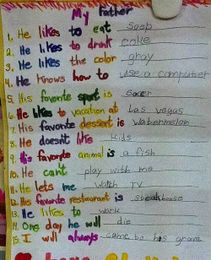 My father
1. He likes to eat soap
2. He likes to drink coke
3. He likes the color gray
4. He knows how to use a computer
5. His favorite sport is Soccer
6. He likes to vacation at Las vegas
7. His favorite dessert is watermelon
8. He doesnt like kids
9. His favorite animal is a fish
10. He cant play with me
11. He lets me watch TV
12. His favorite restaurant is steakhouse
13. He likes to work
14. One day he will die
15. I will always come to his grave